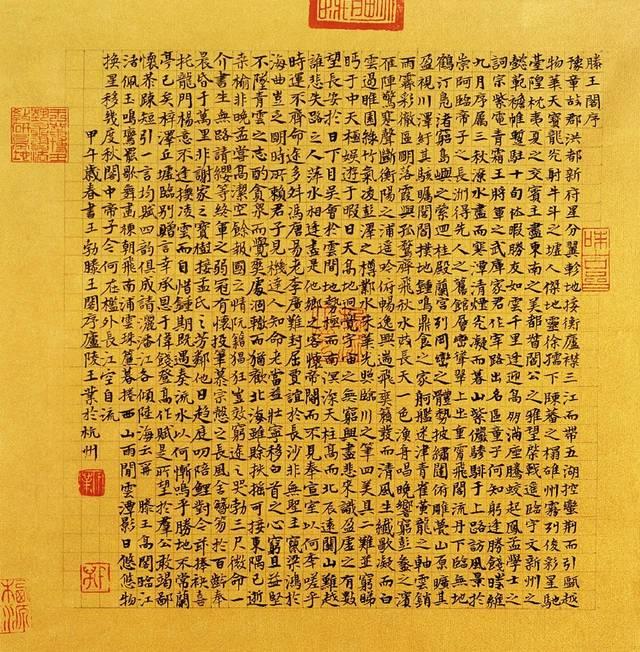 滕王閣序
豫章故郡洪都新府星分翼軫地接衡廬襟三江而帶五湖控蠻荊而引甌越
物華天寶龍光射牛斗之墟人傑地靈徐孺下陳蕃之榻雄州霧列俊彩星馳
臺隍枕夷夏之交賓主盡東南之美都督閻公之雅望棨戟遙臨宇文新州之
懿範襜帷暫駐十旬休暇勝友如雲千里逢迎高朋滿座騰蛟起鳳孟學士之
詞宗紫電青霜王將軍之武庫家君作宰路出名區童子何知躬逢勝餞時維
九月序屬三秋潦水盡而寒潭清煙光凝而暮山紫儼驂騑于上路訪風景於
崇阿臨帝子之長洲得先人之舊館層巒聳翠上出重霄飛閣流丹下臨無地
鶴汀鳧渚窮島嶼之縈迴桂殿蘭宮列岡巒之體勢披繡闥俯雕甍山原曠其
盈視川澤紆其駭矚閭閻撲地鐘鳴鼎食之家舸艦迷津青雀黃龍之軸雲銷
雨霽彩徹區明落霞與孤鶩齊飛秋水共長天一色漁舟唱晚響窮彭蠡之濱
雁陣驚寒聲斷衡陽之浦遙吟俯暢逸興遄飛爽籟發而清風生纖歌凝而白
雲遏睢園綠竹氣凌彭澤之樽鄴水朱華光照臨川之筆四美具二難並窮睇
眄于中天極娛遊于暇日天高地迥覺宇宙之無窮興盡悲來識盈虛之有數
望長安於日下目吳會於雲間地勢極而南溟深天柱高而北辰遠關山難越
誰悲失路之人萍水相逢盡是他鄉之客懷帝閽而不見奉宣室以何年嗟乎
時運不齊命途多舛馮唐易老李廣難封屈賈誼於長沙非無聖主竄梁鴻於
海曲豈乏明時所賴君子見機達人知命老當益壯寧移白首之心窮且益堅
不墜青雲之志酌貪泉而覺爽處涸轍而猶歡北海雖賒扶搖可接東隅已逝
桑榆非晚孟嘗高潔空餘報國之情阮籍猖狂豈效窮途之哭勃三尺微命一
介書生無路請纓等終軍之弱冠有懷投筆慕宗愨之長風舍簪笏於百齡奉
晨昏于萬里非謝家之寶樹接孟氏之芳鄰他日趨庭叨陪鯉對今茲捧袂喜
托龍門楊意不逢撫凌雲而自惜鍾期既遇奏流水以何慚嗚乎勝地不常蘭
亭已矣梓澤丘墟臨別贈言幸承恩于偉餞登高作賦是所望於羣公敢竭鄙
懷恭疏短引一言均賦四韻俱成請灑潘江各傾陸海云爾 滕王高閣臨江
渚佩玉鳴鸞罷歌舞畫棟朝飛南浦雲珠簾暮捲西山雨閒雲潭影日悠悠物
換星移幾度秋閣中帝子今何在檻外長江空自流
甲午歲春書王勃滕王閣序廬陵王葉於杭州